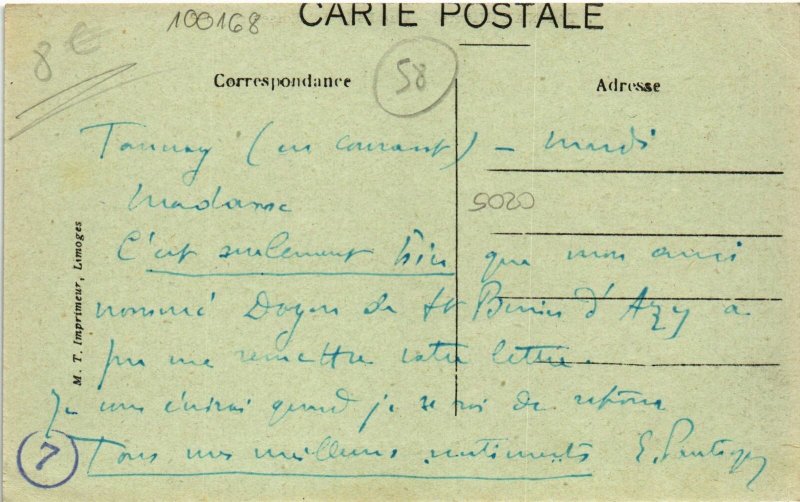 100168
CARTE POSTALE
8€
58
Correspondance
Adresse
Tannay (en courant) - mardi
Madame
5020
C'est seulement hier que mon ami
nommé Doyen de St Benin d'Azy a
pu me remettre votre lettre.
Je vous écrirai quand je serai de retour
Tous mes meilleurs sentiments E.
7
M. T. Imprimeur, Limoges